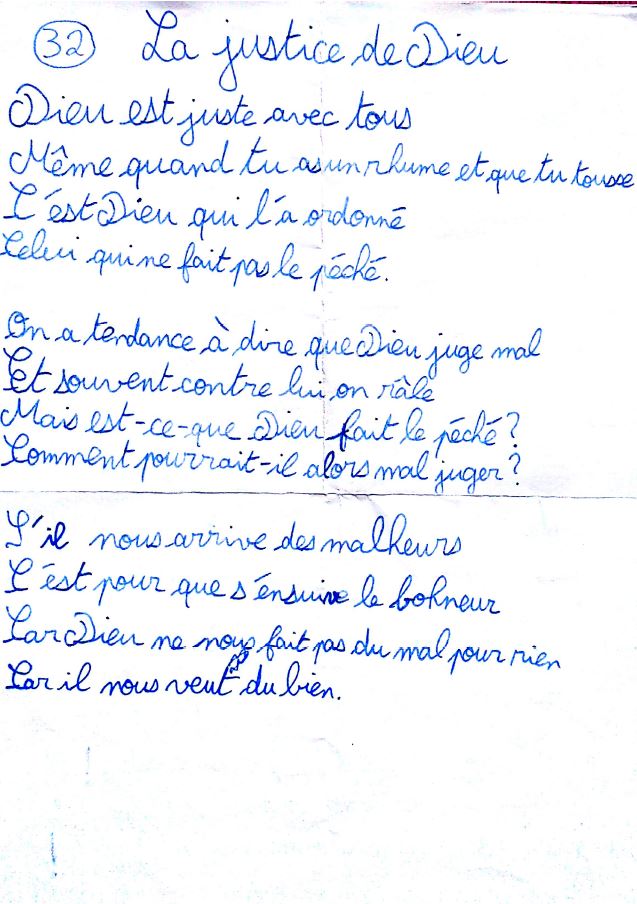 32 La justice de Dieu
Dieu est juste avec tous
Même quand tu as un rhume et que tu tousse
C'est Dieu qui l'a ordonné
Celui qui ne fait pas le péché.
On a tendance à dire que Dieu juge mal
Et souvent contre lui on râle
Mais est-ce-que Dieu fait le péché ?
Comment pourrait-il alors mal juger ?
S'il nous arrive des malheurs
C'est pour que s'ensuive le bohneur
Car Dieu ne nous fait pas du mal pour rien
Car il nous veut du bien.